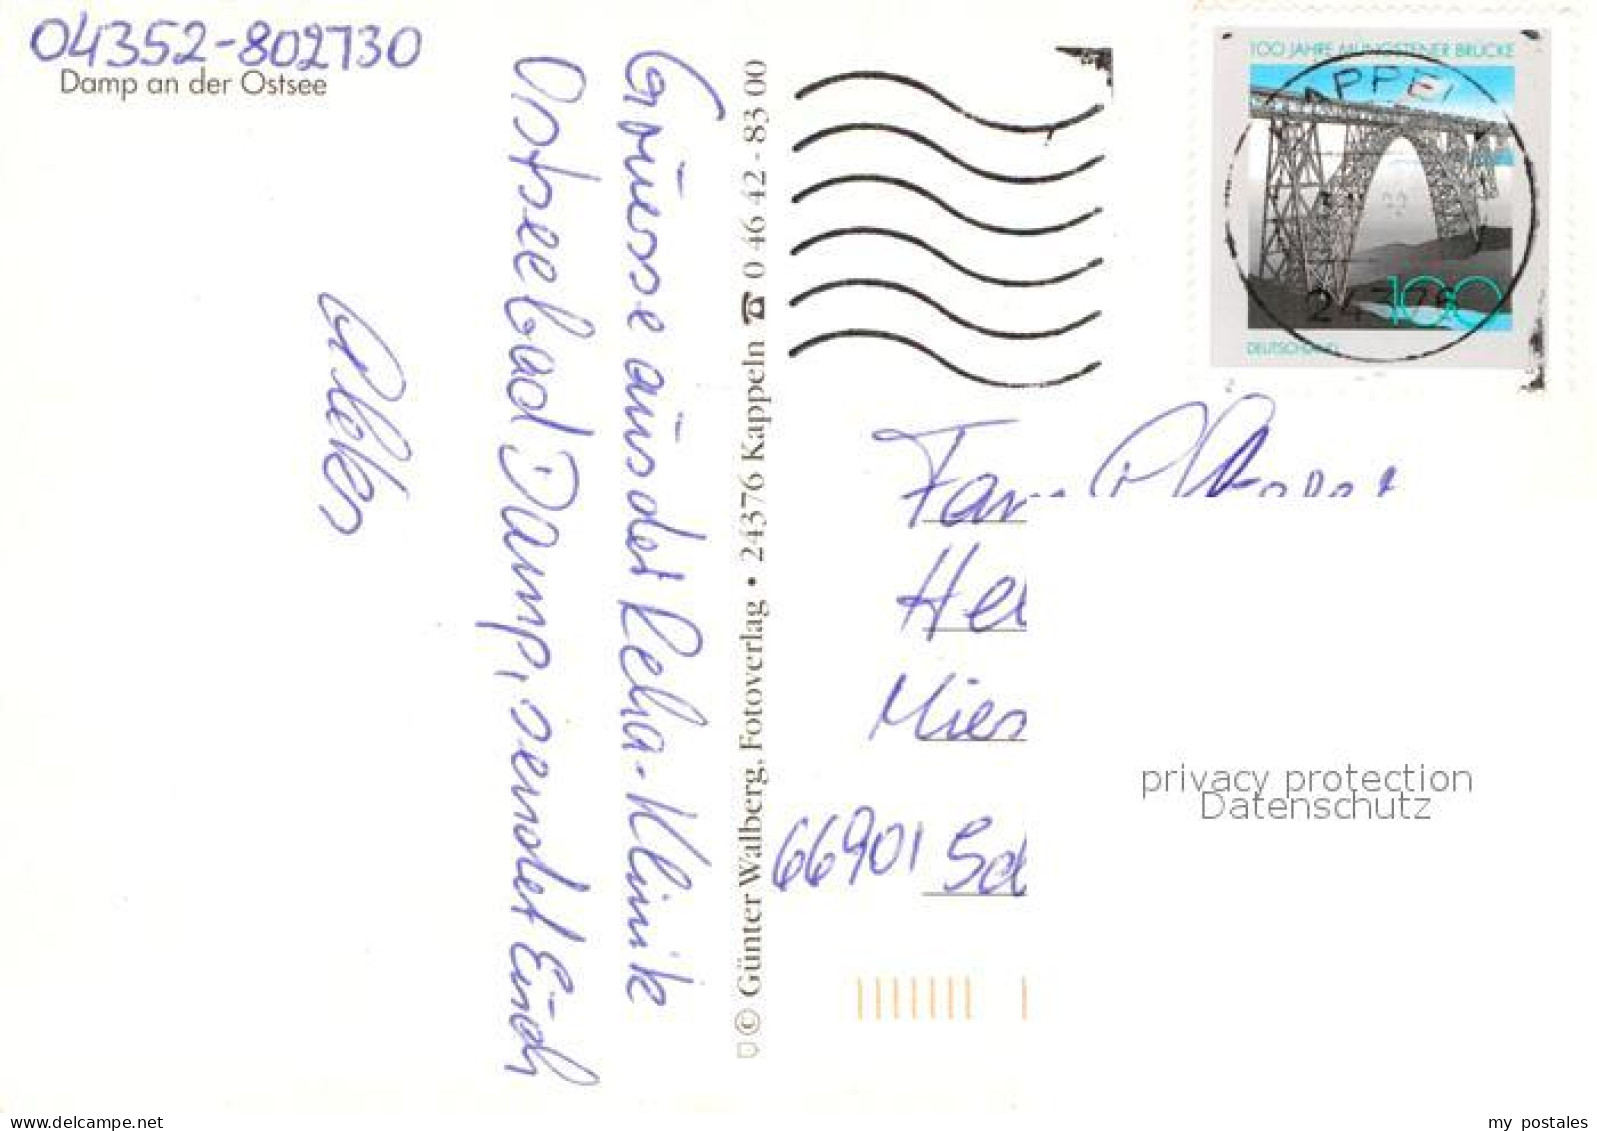 04352-802730
Damp an der Ostsee
Grüsse aus der Reha-Klinik
Ostseebad Damp, sendet Euch
© Günter Walberg, Fotoverlag • 24376 Kappeln ☎ 0 46 42 - 83 00
100 JAHRE MÜNGSTENER BRÜCKE
APPEL
24376
100
DEUTSCHLAND
Fam
He
Mies
66901 Sch
privacy protection
Datenschutz
delcampe.net
my_postales